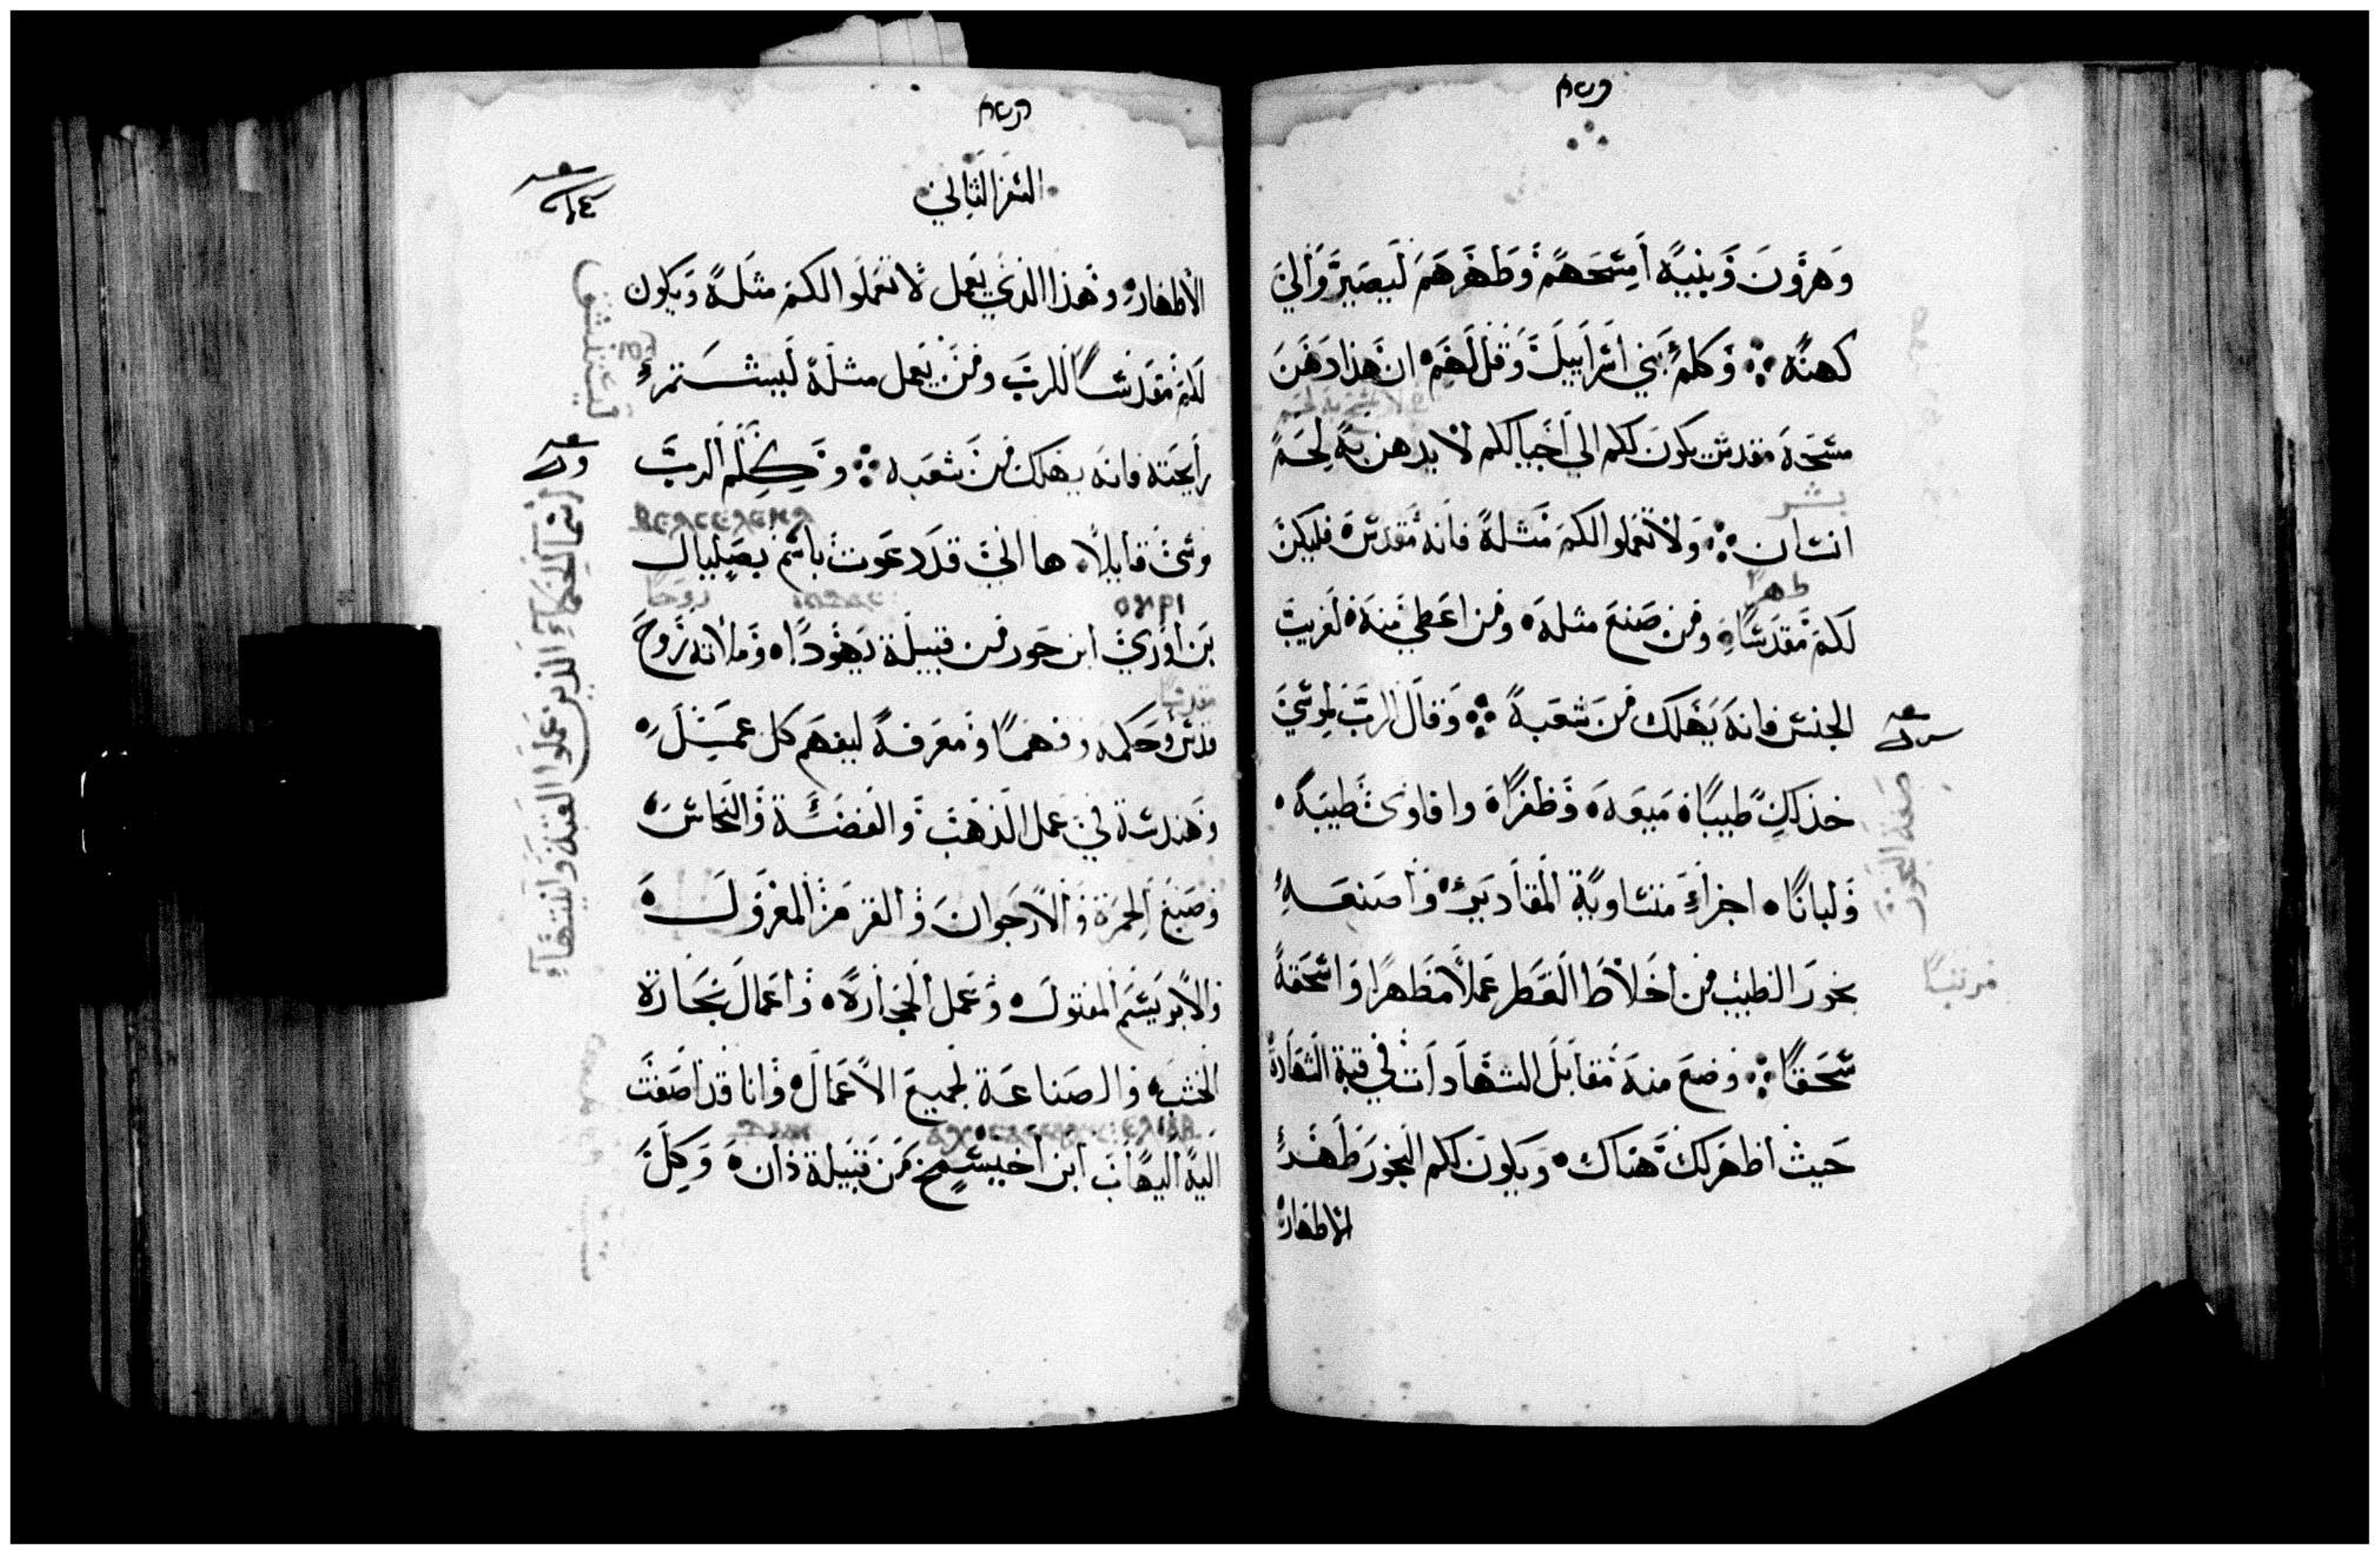 وهرون وبنيه امسحهم وطهرهم ليصيروا لي
كهنه وكلم بني اسراييل وقل لهم ان هذا دهن
مسحه مقدس يكون لكم الي اجيالكم لا يدهن به لحم
بشر
انسان ولا تعملوا لكم مثله فانه مقدس فليكن
طهرا
لكم مقدسا ومن صنع مثله ومن اعطي منه لغريب
الجنس فانه يهلك من شعبه وقال الرب لموسي
خذ لك طيبا ميعه وظفرا وا طيبه
ولبانا اجزاء متساوية المقادير واصنعه
صنعة البخور
بخور الطيب من اخلاط العطر عملا مطهرا واسحقه
مرتبا
سحقا وضع منه مقابل الشهادات في قبة الشهادة
حيث اظهر لك هناك ويكون لكم البخور طهر
الاطهار
السفر الثاني
الاطهار وهذا الذي يعمل لا تعملوا لكم مثله ويكون
لكم مقدسا للرب ومن يعمل مثله ليستمرء
رايحته فانه يهلك من شعبه وكلم الرب
موسي قايلا ها اني قد دعوت باسم بصليال
روحا
بن اوري ابن حور من قبيلة يهودا وملاته روح
مقدسا
قدس وحكمه وفهما ومعرفة ليفهم كل عمل
وهندسة في عمل الذهب والفضة والنحاس
وصبغ الحمرة والارجوان والقرمز المغزول
والابريسم المفتول وعمل الحجارة واعمال نجارة
الخشب والصناعة لجميع الاعمال وانا قد اضفت
اليه اليهاب ابن اخيسمخ من قبيلة ذان وكل
اسما الحكماء الذين عملوا القبة وانيتها